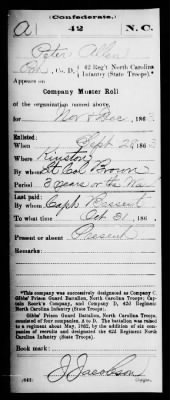 (Confederate.)
A 42 N.C.
Peter Allen
Pvt, Co. D, 42 Reg't North Carolina
Infantry (State Troops).*
Appears on
Company Muster Roll
of the organization named above,
for Nov & Dec, 186
Enlisted:
When Sept 29, 186
Where Kinston
By whom Lt Col Brown
Period 3 years or the War
Last paid:
By whom Capt Bessent
To what time Oct 31, 186
Present or absent Present
Remarks:
*This company was successively designated as Company C,
Gibbs' Prison Guard Battalion, North Carolina Troops; Captain
and Company D, 42d Regiment
North Carolina Infantry (State Troops).
Gibbs' Prison Guard Battalion, North Carolina Troops, consisted
of four companies, A to D. The battalion was raised
to a regiment about May, 1862, by the addition of six companies
of recruits and designated the 42d Regiment North
Carolina Infantry (State Troops).
Book mark:
J. Jacobson
(642) Copyist.